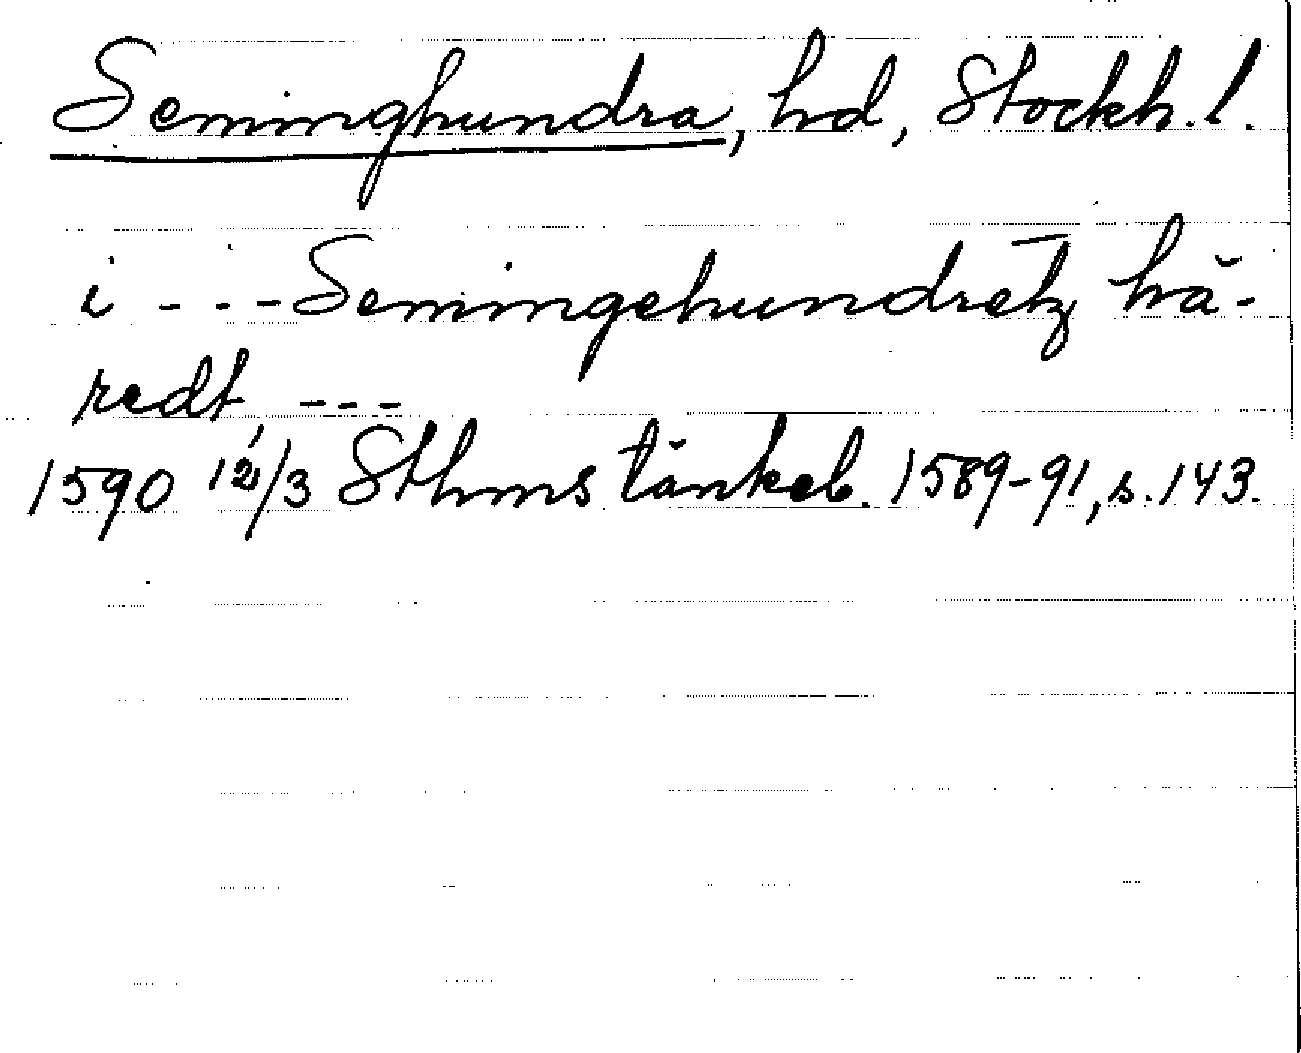 Seminghundra, hd, Stockh. l.
i - - - Semingehundretz hä-
redt, - - -
1590 12/3 Sthms tänkeb. 1589-91, s. 143.